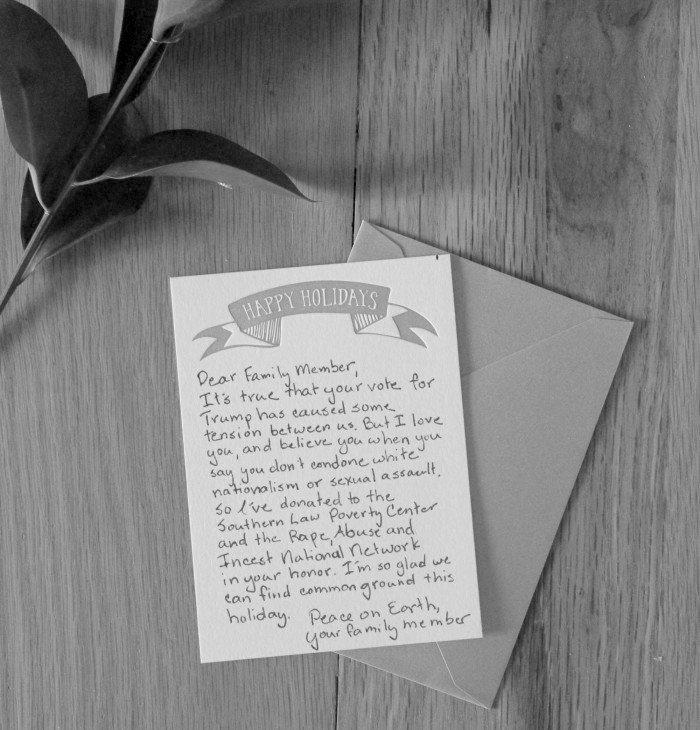 HAPPY HOLIDAYS
Dear Family Member,
It's true that your vote for
Trump has caused some
tension between us. But I love
you, and believe you when you
say you don't condone white
nationalism or sexual assault.
so I've donated to the
Southern Law Poverty Center
and the Rape, Abuse and
Incest National Network
in your honor. I'm so glad we
can find common ground this
holiday. Peace on Earth,
your family member